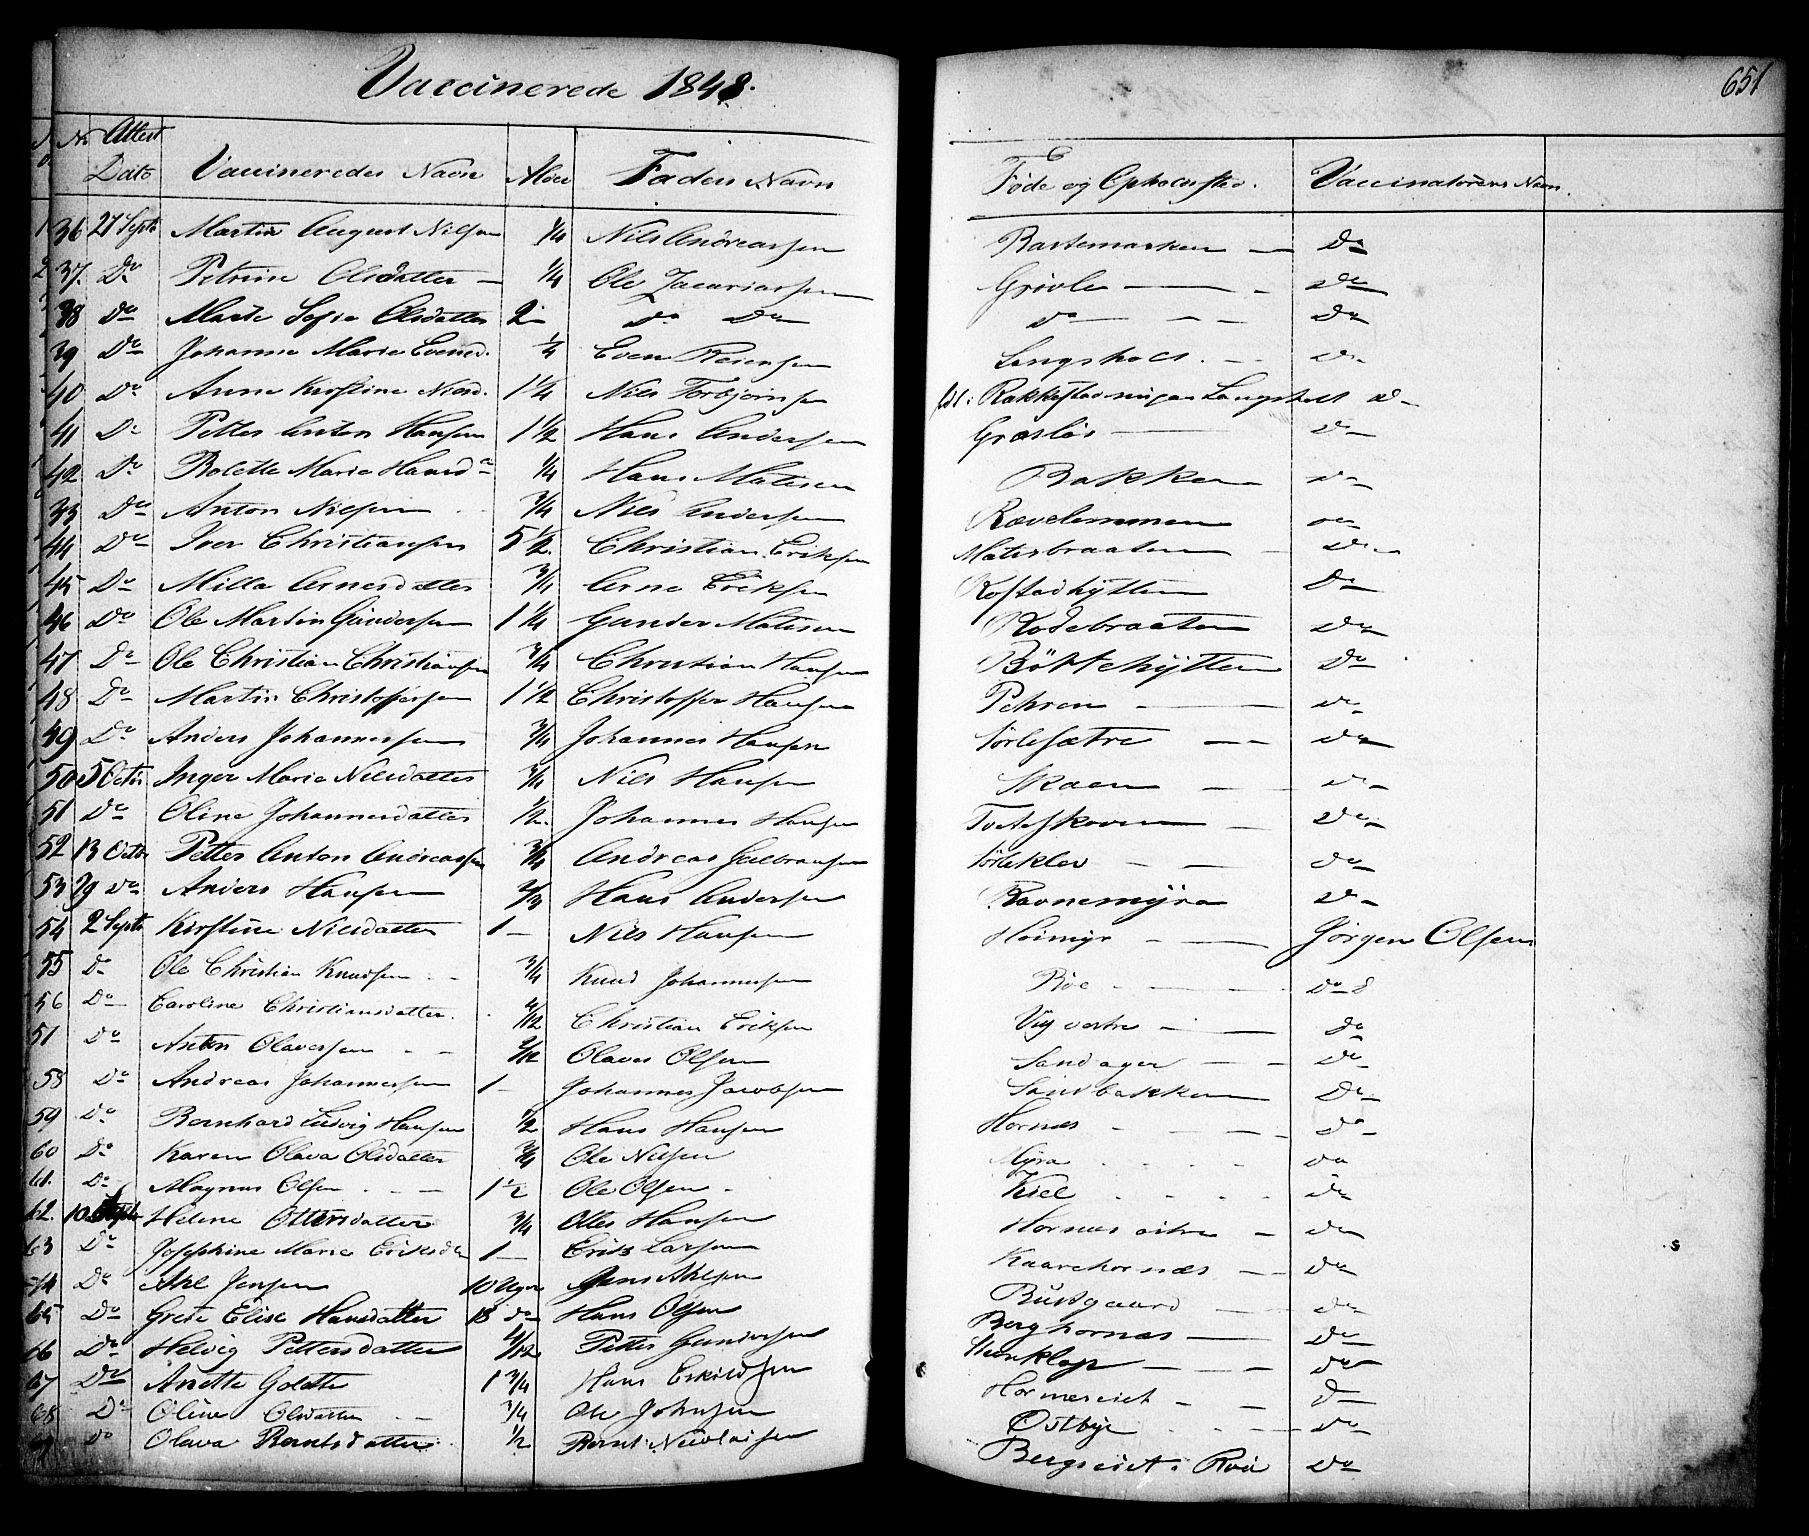 Vaccinerede 1848.
651
No Nr Attest Dato Vaccineredes Navn Alder Faders Navn Føde og Opholdssted. Vaccinatørens Navn.
1 36 27 Septb Martin August Nilsen 1/4 Nils Andreassen Do
2 37. Do Petrine Olsdatter 1/4 Ole Zacariassen Grivle Do
38 Do Marte Sofie Olsdatter 2 Do Do Do Do
39 Do Johanne Marie Evensd. 1/4 Even Reiersen Langsholt. Do
40 Do Anne Kirstine Nielsd. 1 1/4 Nils Torbjørnsen fdt: Rakkestad Langsholt Do
41 Do Petter Anton Hansen 1 1/2 Hans Andersen Græsløs Do
42 Do Bolette Marie Hansdr 1/4 Hans Matisen Bakken Do
33 Do Anton Nilsen 3/4 Nils Andersen Rævelemmen Do
44 Do Iver Christiansen 5 1/2 Christian Eriksen Matisbraaten Do
45 Do Milla Arnesdatter 3/4 Arne Eriksen Kofstadhytten Do
46 Do Ole Martin Gundersen 1 1/4 Gunder Matisen Rødebraaten Do
47 Do Ole Christian Christiansen 3/4 Christian Hansen Bøttehytten Do
48 Do Martin Christoffersen 1 1/2 Christoffer Hansen Pehren Do
49 Do Anders Johannessen 3/4 Johannes Hansen Sørlesætre Do
50 5 Octbr Inger Marie Nilsdatter 3/4 Nils Hansen Skaen Do
51 Do Oline Johannesdatter 1/2. Johannes Hansen Do
52 13 Octbr Petter Anton Andreassen 3/4 Andreas Gulbransen Sørleklev Do
53 29 do Anders Hansen 2/3 Hans Andersen Ravnemyra Do
54 2 Septb Kirstine Nilsdatter 1 Nils Hansen Høimyr Jørgen Olsen
55 Do Ole Christian Knudsen 3/4 Knud Johannesen Røe Do
56 Do Caroline Christiansdatter. 4/12 Christian Eriksen Vig vestre Do
51 Do Anton Olavessen 2/12 Olaves Olsen Sandager Do
58 Do Andreas Johannessen 1 Johannes Jacobsen Sandbakken Do
59 Do Bernhard Ludvig Hansen 1/2 Hans Hansen Hornæs Do
60 Do Karen Olava Olsdatter 3/4 Ole Nilsen Myra Do
61. Do Magnus Olsen 1 1/2 Ole Olsen Kiel Do
62. 10 Septb Helene Ottersdatter 3/4 Otter Hansen Hornæs østre Do
63 Do Josephine Marie Eriksdr 1 Erik Larsen Kaarehornæs Do
64 Do Axel Jensen 10 Uger Jens Axelsen Bustgaard Do
65 Do Grete Elise Hansdatter 18 do Hans Olsen Berghornæs Do
66 Do Helvig Pettersdatter 4/12 Petter Gundersen Do
67 Do Anette 1 3/4 Hans Eskildsen Hornæseiet Do
68 Do Oline Olsdatter 3/4 Ole Johnsen Østbye Do
69 Do Olava Berntsdatter 1/2 Bernt Nicolaisen Bergseiet i Roe Do